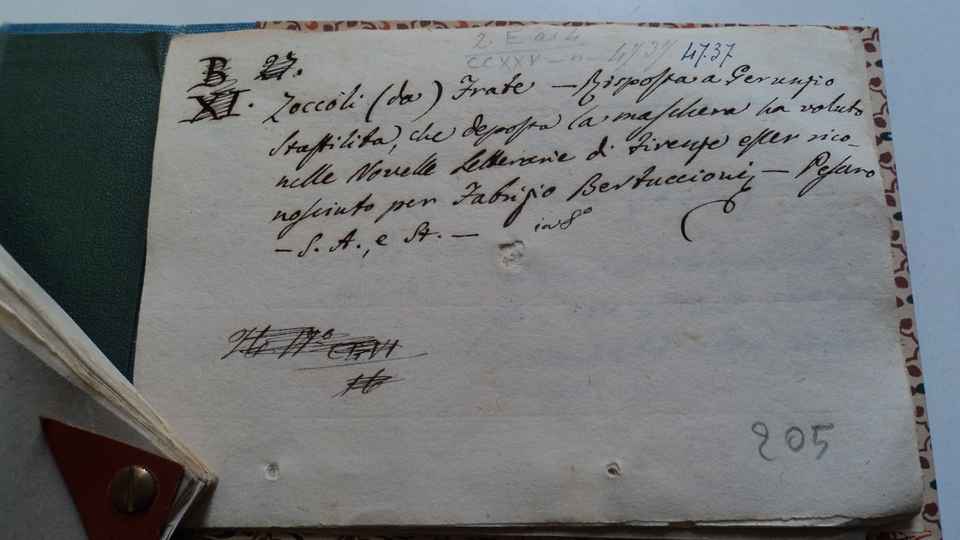 2. E
CCXXV — n — 4737 4737
B 27.
XI. Zoccoli (da) Frate — Risposta a Gerunzio
Staffilita, che deposta la maschera ha voluto
nelle Novelle Letterarie di Firenze esser rico-
nosciuto per Fabrizio Bertuccioni — Pesaro
— S. A., e St. — in 8°
205